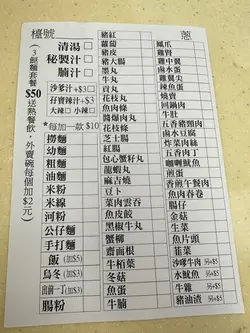 檯號
蔥
(3餸麵套餐$50送熱餐飲，外賣碗每個加$2元)
清湯
秘製汁
腩汁
沙爹汁+$3
孖寶辣汁+$3
大辣 小辣
*每加一款$10
撈麵
幼麵
粗麵
油麵
米粉
米線
河粉
公仔麵
手打麵
飯 (加$5)
烏冬 (加$3)
出前一丁(加$3)
腸粉
豬紅
蘿蔔
豬皮
豬大腸
墨丸
牛丸
貢丸
花枝丸
魚肉條
醬爆肉丸
花枝條
芝士腸
紅腸
包心墨魚丸
龍蝦丸
麻吉燒
豆卜
菜肉雲吞
魚皮餃
黑椒牛丸
蟹柳
齋面根
牛栢葉
冬菇
魚蛋
牛腩
鳳爪
雞腎
雞中翼
鹵水蛋
雞翼尖
辣魚蛋
燒賣
回鍋肉
牛肚
五香豬頸肉
鹵水豆腐
炸菜肉絲
五香肉丁
咖喱魷魚
魚蛋
香煎午餐肉
魚肉春卷
腸仔
金菇
生菜
魚片頭
韭菜
沙嗲牛肉 另+$5
水魷魚 另+$5
牛雜 另+$5
豬油渣 另+$5